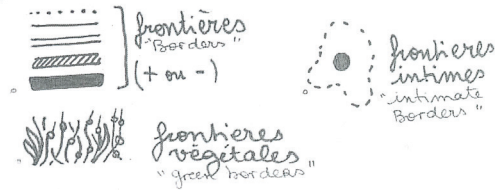 frontières
"Borders"
(+ ou -)
frontieres
intimes
"intimate
Borders"
frontieres
végétales
"green borders"